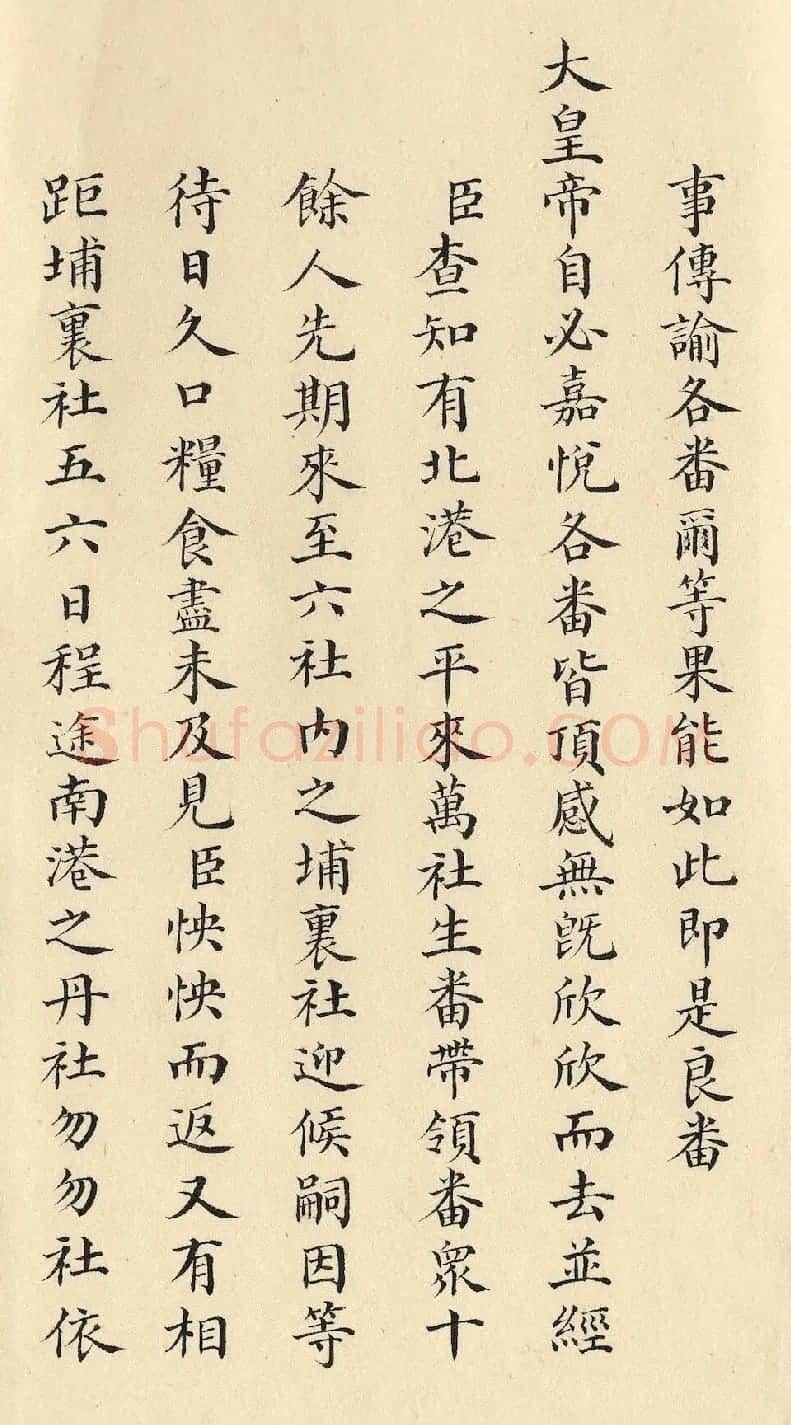 事傳諭各番爾等果能如此即是良番
大皇帝自必嘉悅各番皆頂感無旣欣欣而去並經
臣查知有北港之平來萬社生番帶領番眾十
餘人先期來至六社內之埔裏社迎候嗣因等
待日久口糧食盡未及見臣怏怏而返又有相
距埔裏社五六日程途南港之丹社勿勿社依
Shufaziliao.com